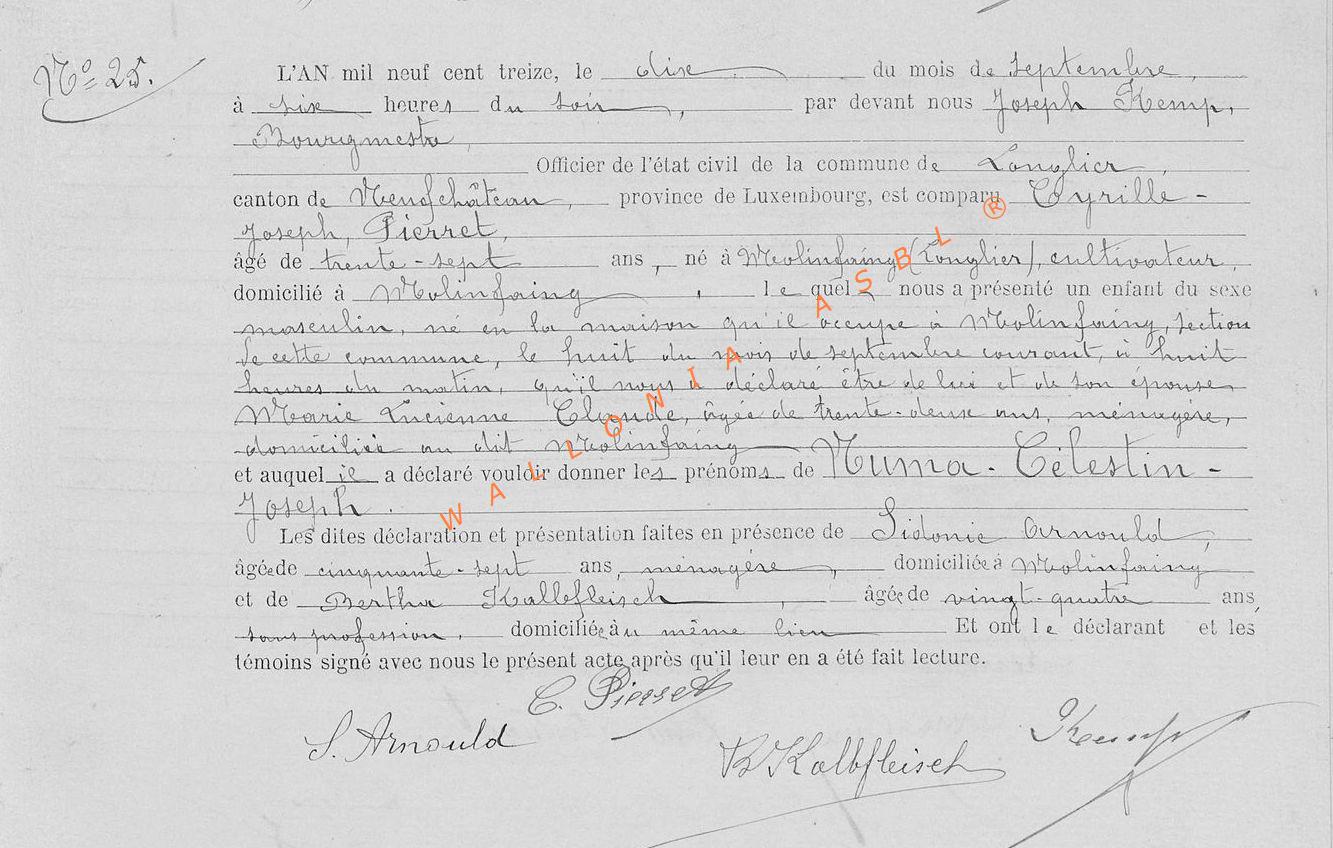 N° 25.
L'AN mil neuf cent treize, le dix du mois de septembre,
à six heures du soir, par devant nous Joseph Kemp,
Bourgmestre,
Officier de l'état civil de la commune de Longlier,
canton de Neufchâteau, province de Luxembourg, est comparu Cyrille-
Joseph, Pierret,
âgé de trente-sept ans, né à Molinfaing (Longlier), cultivateur,
domicilié à Molinfaing, lequel nous a présenté un enfant du sexe
masculin, né en la maison qu'il occupe à Molinfaing, section
de cette commune, le huit du mois de septembre courant, à huit
heures du matin, qu'il nous a déclaré être de lui et de son épouse
Marie Lucienne Claude, âgée de trente-deux ans, ménagère,
domiciliée au dit Molinfaing
et auquel il a déclaré vouloir donner les prénoms de Numa-Célestin-
Joseph.
Les dites déclaration et présentation faites en présence de Sidonie Arnould,
âgée de cinquante-sept ans, ménagère, domiciliée à Molinfaing
et de Bertha Kalbfleisch, âgée de vingt-quatre ans,
sans profession, domiciliée au même lieu Et ont le déclarant et les
témoins signé avec nous le présent acte après qu'il leur en a été fait lecture.
C. Pierret
S. Arnould
B Kalbfleisch
Kemp
WALLONIA ASBL ®